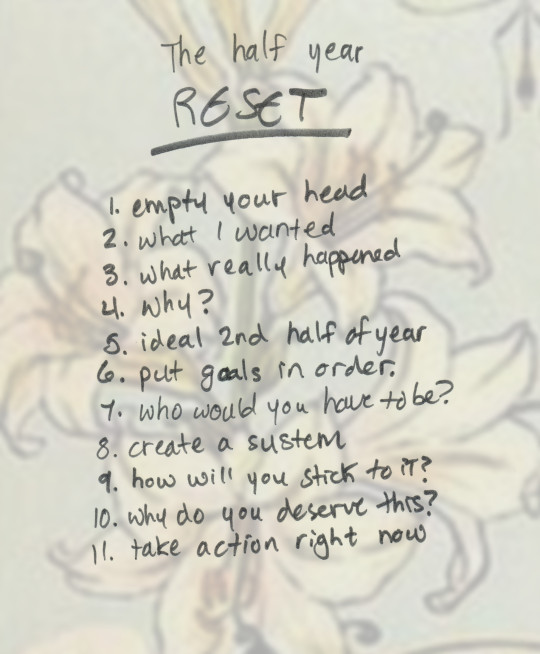 The half year
RESET
1. empty your head
2. what I wanted
3. what really happened
4. why?
5. ideal 2nd half of year
6. put goals in order.
7. who would you have to be?
8. create a system
9. how will you stick to it?
10. why do you deserve this?
11. take action right now